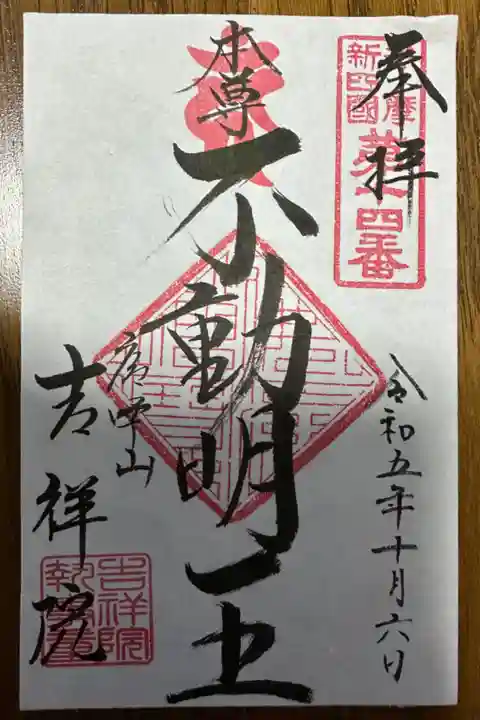 奉拝
新四國
第
四番
令和五年十月六日
本尊
不動明王
山
吉祥院
吉祥院